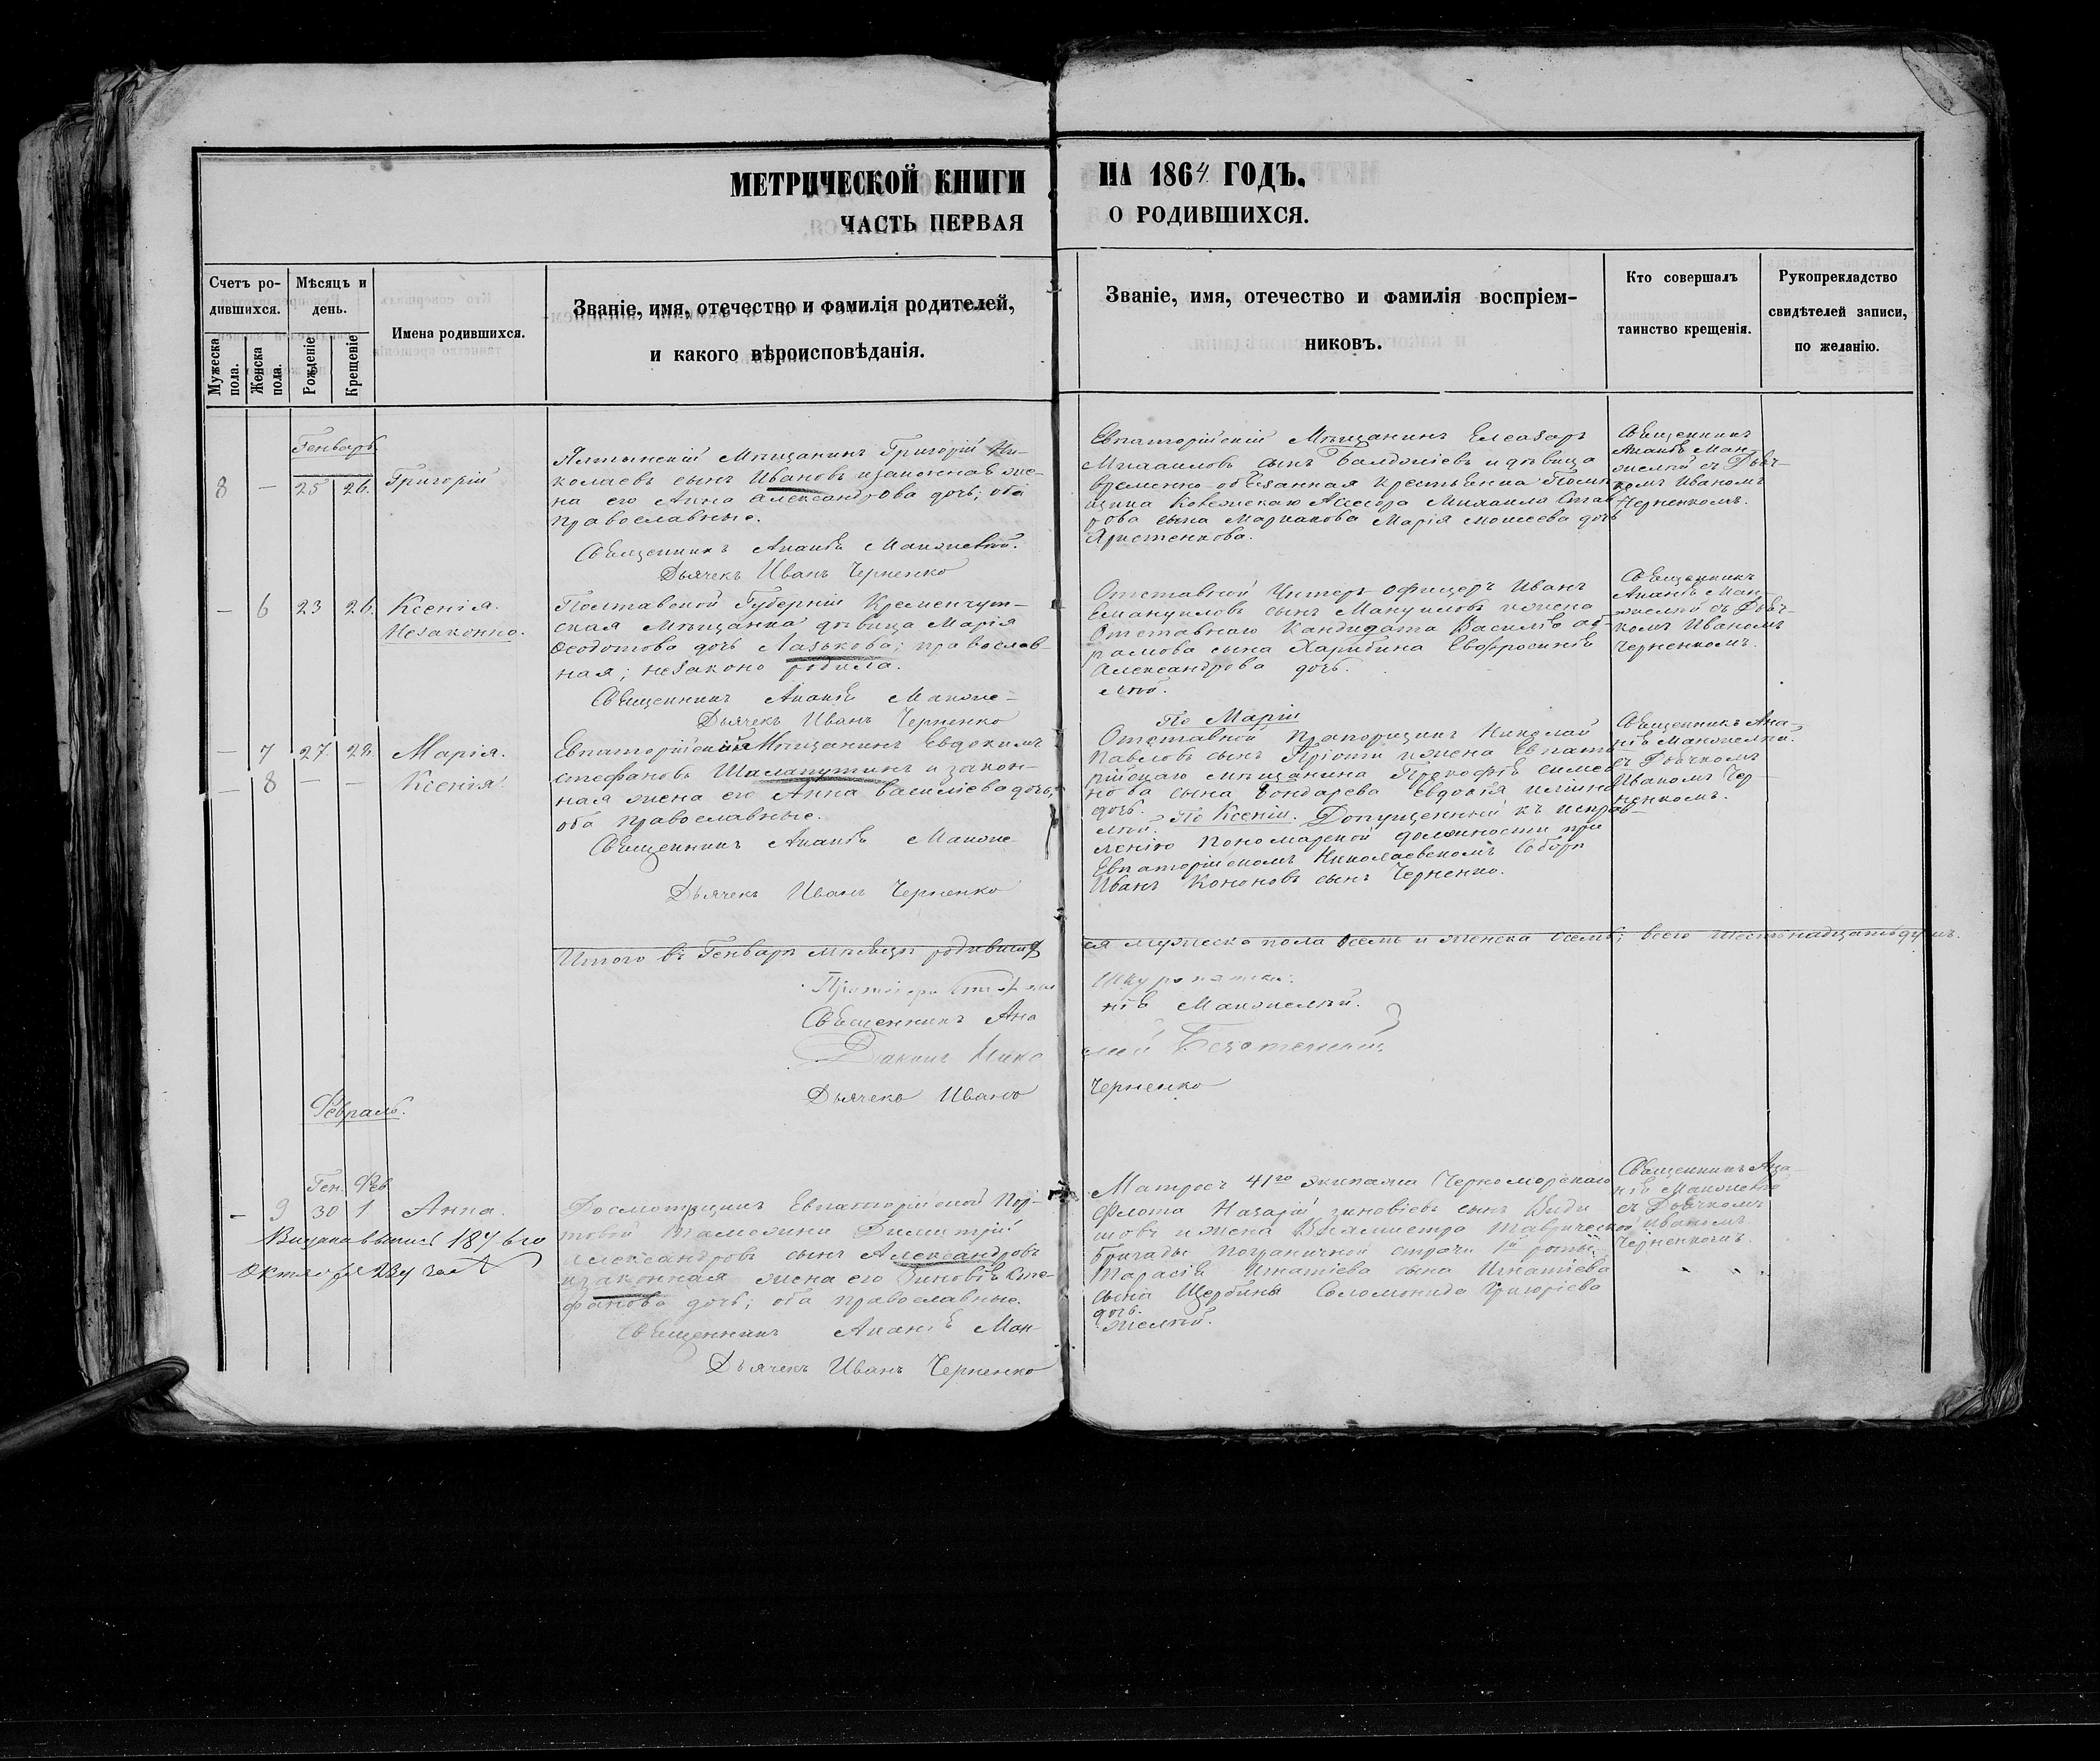 МЕТРИЧЕСКОЙ КНИГИ НА 1864 ГОДЪ.
ЧАСТЬ ПЕРВАЯ О РОДИВШИХСЯ.
Счетъ ро-
дившихся.
Мужеска
пола.
Женска
пола.
Мѣсяцъ и
день.
Рожденіе
Крещеніе
Имена родившихся.
Званіе, имя, отечество и фамилія родителей,
и какого вѣроисповѣданія.
Званіе, имя, отечество и фамилія воспріем-
никовъ.
Кто совершалъ
таинство крещенія.
Рукопрекладство
свидѣтелей записи,
по желанію.
Генварь
8 — 25 26. Григорій
Мѣщанинъ Григорій Ни-
колаевъ сынъ Ивановъ и законная же-
на его Анна Александрова дочь; оба
православные.
Священникъ Ананія
Дьячекъ Иванъ Черненко
Евпаторійскій Мѣщанинъ Елеазаръ
Михаиловъ сынъ и дѣвица
временно-обязанная крестьянка Помѣ-
щика Ассесора Михаила
сына Марія Моисеева дочь
Священникъ
Ананія Ман-
желѣй съ Дьяч-
комъ Иваномъ
Черненкомъ.
— 6 23 26. Ксенія.
Незаконно.
Полтавской Губерніи Кременчуг-
ская Мѣщанка дѣвица Марія
Феодотова дочь Лазькова; православ-
ная; незаконо родила.
Священникъ Ананія
Дьячекъ Иванъ Черненко
Отставной Унтеръ-офицеръ Иванъ
Емануиловъ сынъ Мануиловъ и жена
Отставнаго Кандидата Василія Аб-
рамова сына Харибина Евфросинія
Александрова дочь.
Священникъ
Ананія Ман-
желѣй съ Дьяч-
комъ Иваномъ
Черненкомъ.
— 7 27. 28. Марія.
— 8 — — Ксенія.
Евпаторійскій Мѣщанинъ Евдокимъ
Стефановъ Шалапутинъ и закон-
ная жена его Анна Василіева дочь,
оба православные.
Священникъ Ананія
Дьячекъ Иванъ Черненко
По Маріи
Отставной Прапорщикъ Николай
Павловъ сынъ и жена Евпато-
рійскаго мѣщанина Прокофія Симео-
нова сына Бондарева Евдокія
дочь.
По Ксеніи. Допущенный къ исправ-
ленію Пономарской должности при
Евпаторійскомъ Николаевскомъ Соборѣ
Иванъ Кононовъ сынъ Черненко.
Священникъ Ана-
нія
съ Дьячкомъ
Иваномъ Чер-
ненкомъ.
Итого въ Генварѣ мѣсяцѣ родивших-
ся мужеска пола восемь и женска восемь; всего шестьнадцать душъ.
Священникъ Ана
нія
Діаконъ Нико
лай
Дьячекъ Иванъ
Черненко
Февраль.
Ген. Фев.
— 9 30 1 Анна.
Выдана выпись 1876 го
Октября
Досмотрщикъ Евпаторійской Пор-
товой Таможни Димитрій
Александровъ сынъ Александровъ
и законная жена его Зиновія Сте-
фанова дочь; оба православные.
Священникъ Ананія Ман-
Дьячекъ Иванъ Черненко
Матросъ 41го экипажа Черноморскаго
Флота Назарій Зиновіевъ сынъ
и жена Таврической
бригады пограничной стражи 1й роты
Тарасія Игнатіева сына Игнатіева
сына Щербины Соломонида Григоріева
дочь.
желѣй.
Священникъ Ана-
нія
съ Дьячкомъ
Иваномъ
Черненкомъ.